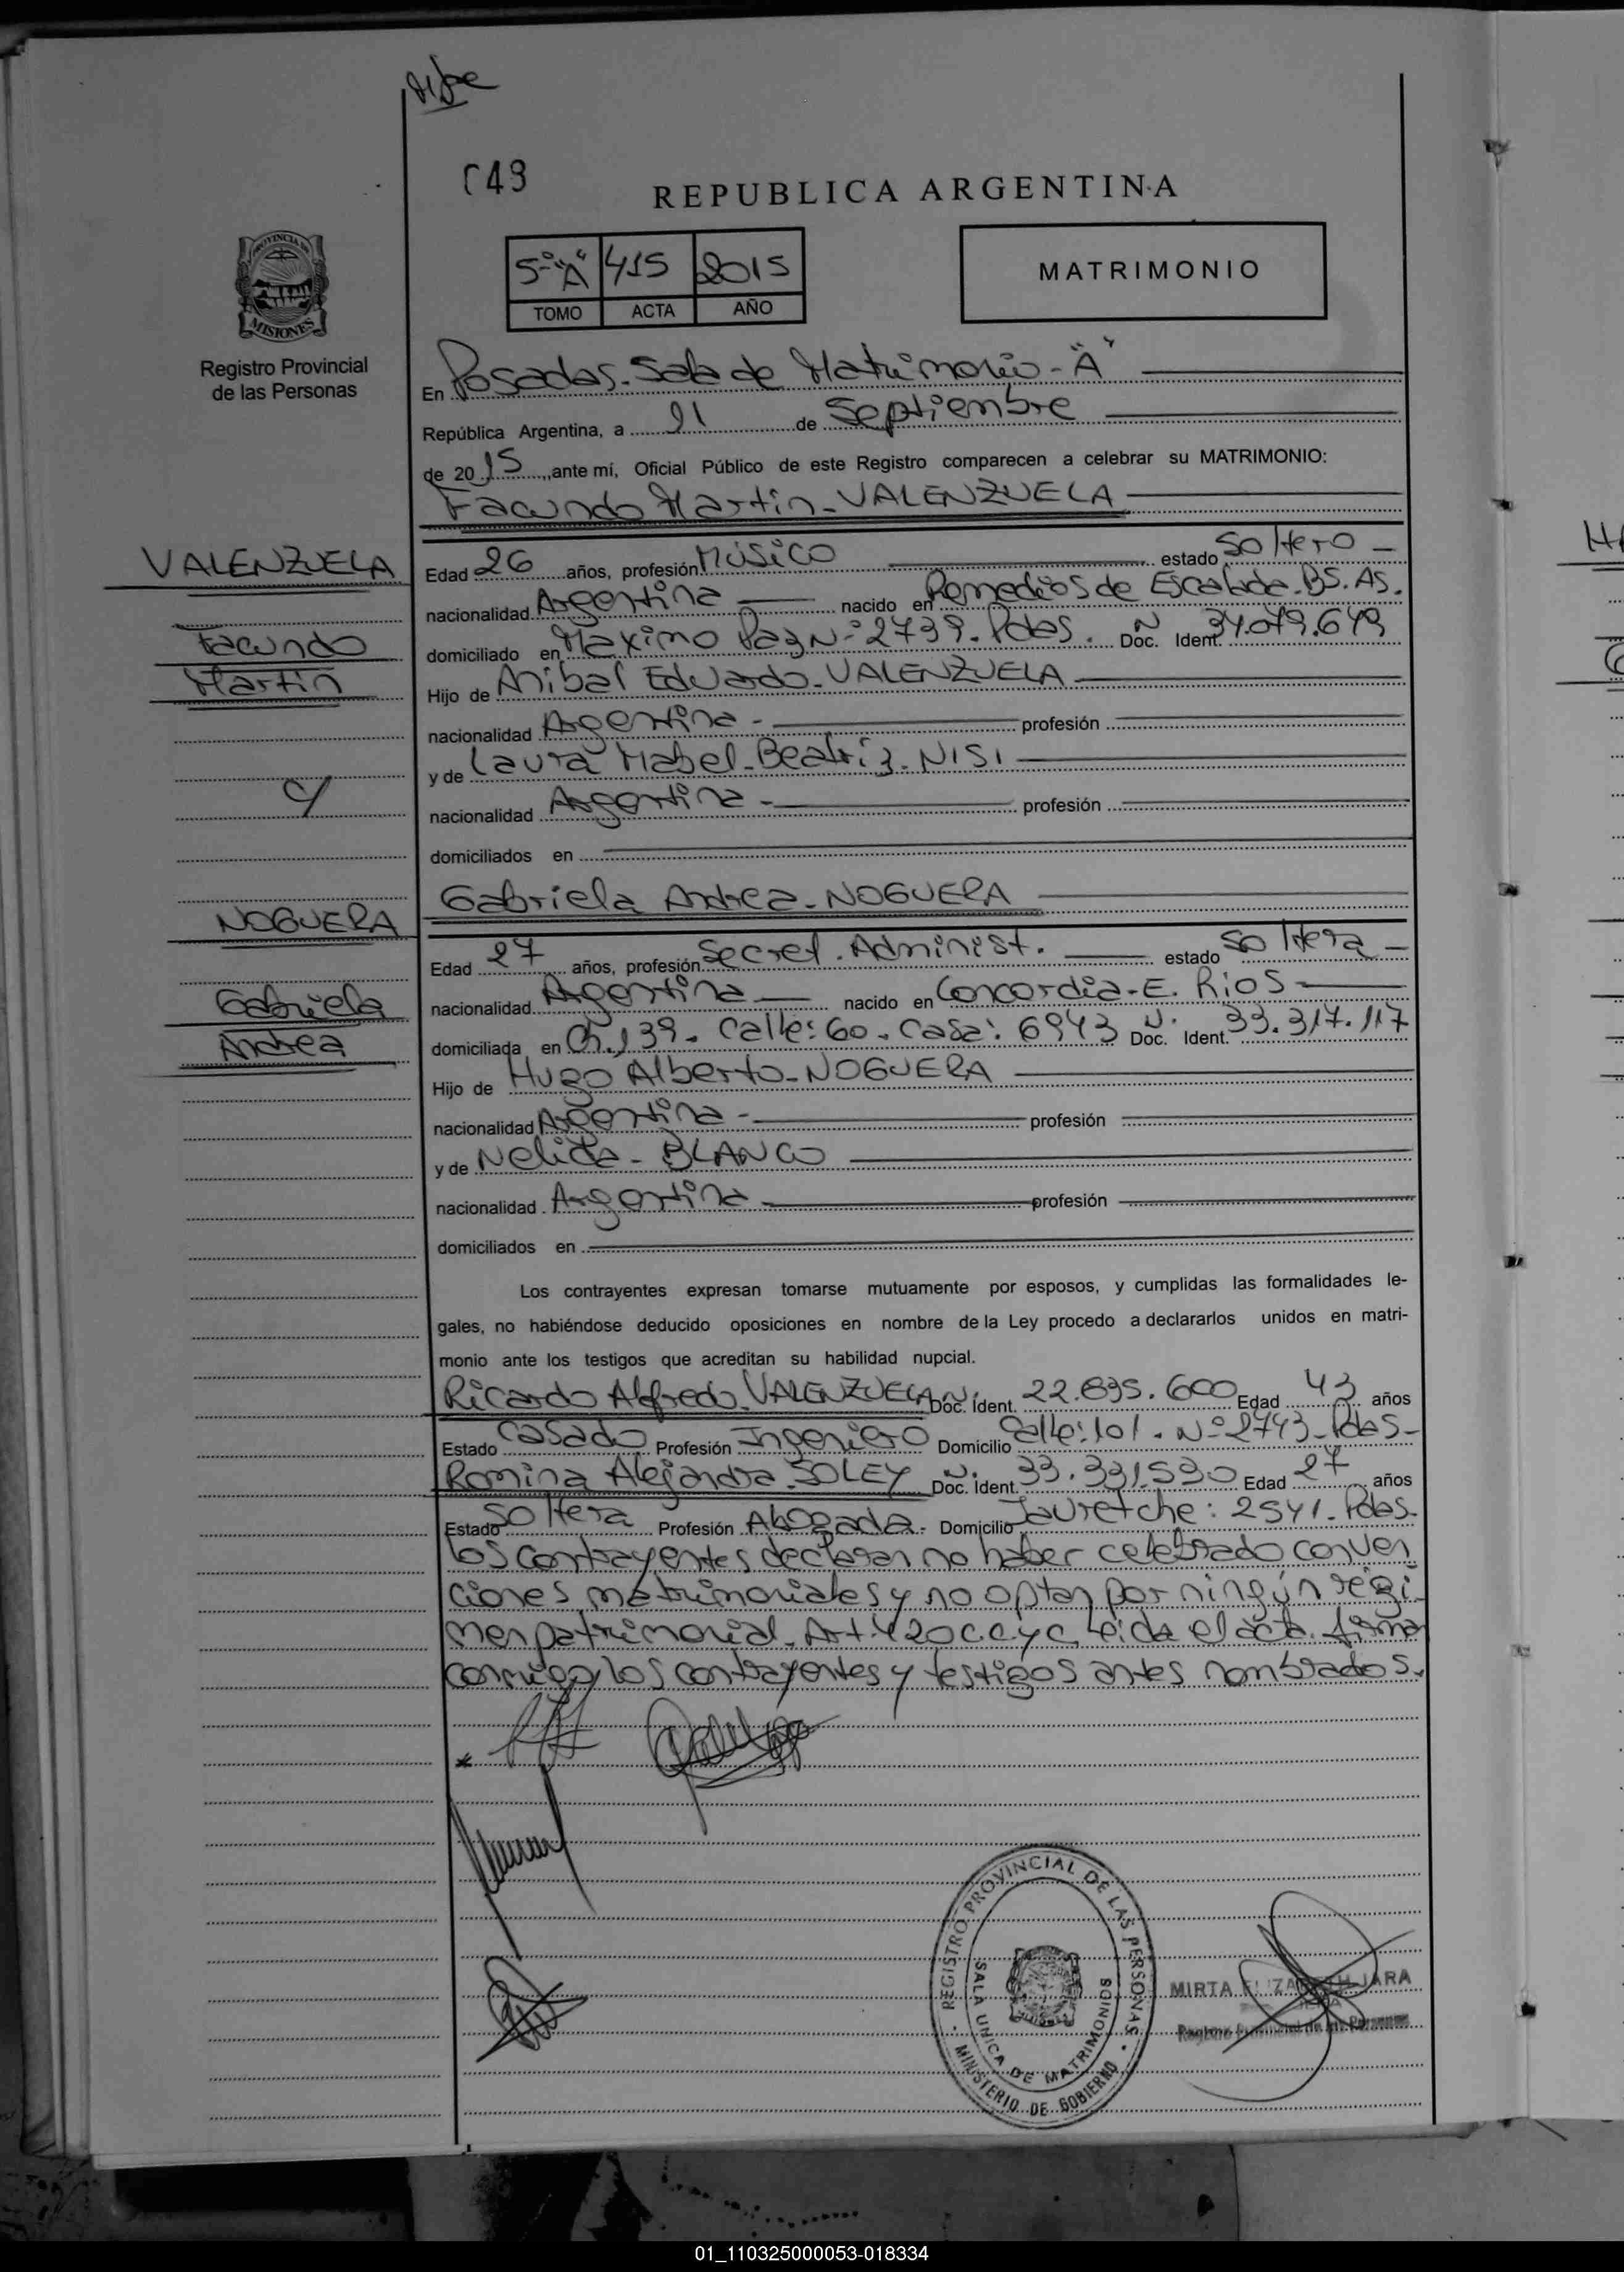 C49
REPUBLICA ARGENTINA
5º "A" 415 2015
TOMO ACTA AÑO
MATRIMONIO
PROVINCIA DE
MISIONES
Registro Provincial
de las Personas
En Posadas. Sala de Matrimonio - "A"
República Argentina, a 21 de Septiembre
de 2015, ante mí, Oficial Público de este Registro comparecen a celebrar su MATRIMONIO:
Facundo Martín - VALENZUELA
VALENZUELA
Facundo
Martín
c/
NOGUERA
Gabriela
Andrea
Edad 26 años, profesión Músico estado Soltero -
nacionalidad Argentina nacido en Remedios de Escalada. BS. AS.
domiciliado en Maximo Paz Nº 2739. Pdas. Doc. Ident. 34.079.649
Hijo de Anibal Eduardo - VALENZUELA
nacionalidad Argentina - profesión
y de Laura Mabel - Beatriz - NISI
nacionalidad Argentina - profesión
domiciliados en
Gabriela Andrea - NOGUERA
Edad 27 años, profesión Secret. Administ. estado Soltera -
nacionalidad Argentina nacido en Concordia - E. RIOS
domiciliada en Ch. 139. Calle: 60. Casa: 6943 Doc. Ident. 33.317.117
Hijo de Hugo Alberto - NOGUERA
nacionalidad Argentina - profesión
y de Nelida - BLANCO
nacionalidad Argentina - profesión
domiciliados en
Los contrayentes expresan tomarse mutuamente por esposos, y cumplidas las formalidades le-
gales, no habiéndose deducido oposiciones en nombre de la Ley procedo a declararlos unidos en matri-
monio ante los testigos que acreditan su habilidad nupcial.
Ricardo Alfredo VALENZUELA Doc. Ident. 22.695.600 Edad 43 años
Estado Casado Profesión Ingeniero Domicilio Calle: 101. Nº 2743 - Pdas -
Romina Alejandra SOLEY Doc. Ident. 33.331.530 Edad 27 años
Estado Soltera Profesión Abogada - Domicilio Jauretche: 2541. Pdas.
los contrayentes declaran no haber celebrado conven
ciones matrimoniales y no optan por ningún regi-
men patrimonial. Art. 420 C.C.y C. leida el acta. firman
conmigo, los contrayentes y testigos antes nombrados.
REGISTRO PROVINCIAL DE LAS PERSONAS
SALA UNICA DE MATRIMONIOS
MINISTERIO DE GOBIERNO
MIRTA ELIZABETH JARA
Registro Provincial de las Personas
01_110325000053-018334